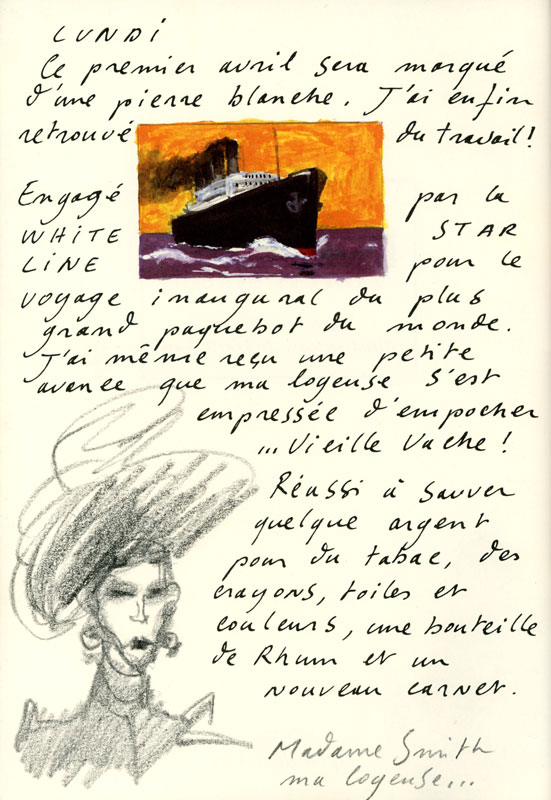 LUNDI
Ce premier avril sera marqué
d'une pierre blanche. J'ai enfin
retrouvé du travail!
Engagé par la
WHITE STAR
LINE pour le
voyage inaugural du plus
grand paquebot du monde.
J'ai même reçu une petite
avance que ma logeuse s'est
empressée d'empocher
...Vieille Vache !
Réussi à sauver
quelque argent
pour du tabac, des
crayons, toiles et
couleurs, une bouteille
de Rhum et un
nouveau carnet.
Madame Smith
ma logeuse...